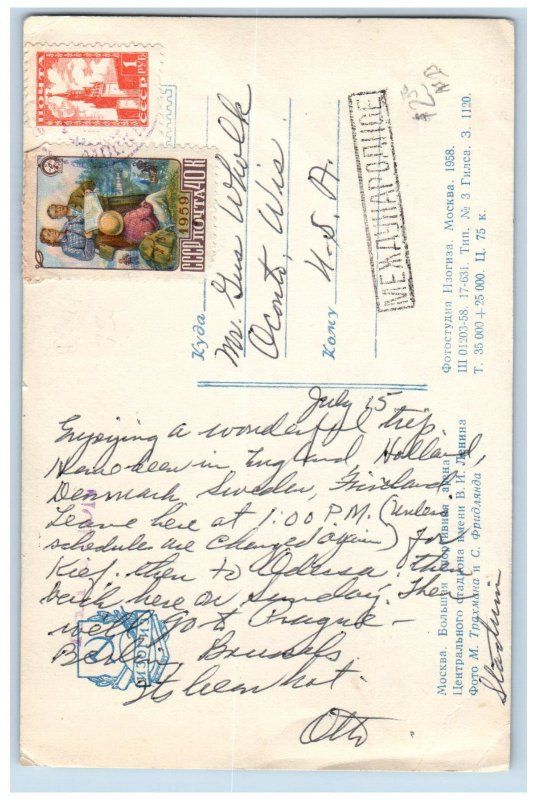 ПОЧТА
1
РУБ.
СССР
СССР ПОЧТА 40К
1959
Куда
Mr. Gus Wholk
Oconto, Wis
Кому U.S.A.
МЕЖДУНАРОДНОЕ
$2.50
NP
July 15
Enjoying a wonderful trip
Have been in England Holland,
Denmark Sweden, Finland
Leave here at 1:00 P.M. (unless
schedules are changed again) for
Kief. then to Odessa. then
back here on Sunday. Then
we'll go to Prague –
Berlin Brussels
It's been hot.
Otto
ИЗОГИЗ
Stadium
Москва. Большая спортивная арена
Центрального стадиона имени В. И. Ленина
Фото М. Трахмана и С. Фридлянда
Фотостудия Изогиза. Москва. 1958.
Ш 01203-58. 17-63i. Тип. № 3 Гилса. З. 1120.
Т. 35 000 + 25 000. Ц. 75 к.